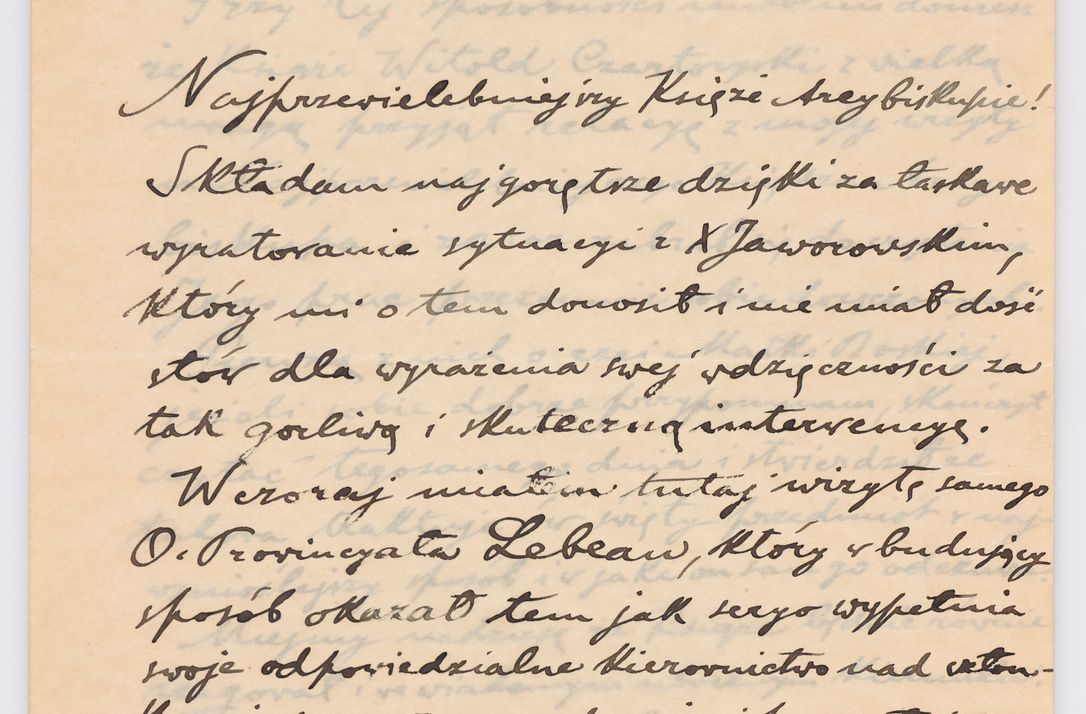 Najprzewielebniejszy Księże Arcybiskupie!
Składam najgorętsze dzięki za łaskawe
wyratowanie sytuacyi z X Jaworowskim,
który mi o tem donosił i nie miał dość
słów dla wyrażenia swej wdzięczności za
tak gorliwą i skuteczną interwencyę.
Wczoraj miałem tutaj wizytę samego
O. Prowincyała Lebeau, który w budujący
sposób okazał tem jak seryo wypełnia
swoje odpowiedzialne kierownictwo nad człon-